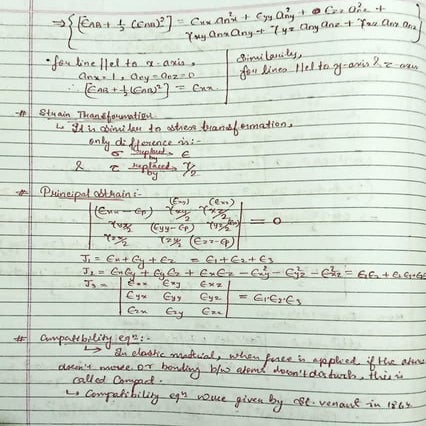 ⇒ {[ЄAB + 1/2 (ЄAB)²] = Єxx anx² + Єyy any² + Єzz anz² +
γxy anx any + γyz any anz + γxz anx anz}
• for line llel to x-axis,
anx = 1, any = anz = 0
∴ [ЄAB + 1/2 (ЄAB)²] = Єxx
Similarily,
for lines llel to y-axis & z-axis
# Strain Transformation
↳ It is similar to stress transformation,
only difference is:-
σ replaced by → ϵ
& τ replaced by → γ/2
# Principal strain:-
(Єxy) (Єxz)
| (Єxx - Єp) γxy/2 γxz/2 |
| γyx/2 (Єyy - Єp) γyz/2 | = 0
| γzx/2 γzy/2 (Єzz - Єp) |
J₁ = Єx + Єy + Єz = Є₁ + Є₂ + Є₃
J₂ = ЄxЄy + ЄyЄz + ЄxЄz - Єxy² - Єyz² - Єxz² = Є₁Є₂ + Є₂Є₃
J₃ = | Єxx Єxy Єxz |
| Єyx Єyy Єyz | = Є₁·Є₂·Є₃
| Єzx Єzy Єzz |
# Compatibility eqⁿ:-
→ In elastic material, when force is applied if the atoms
doesn't move OR bonding b/w atoms doesn't disturb, this is
called Compact.
↳ Compatibility eqⁿ were given by St. venant in 1864